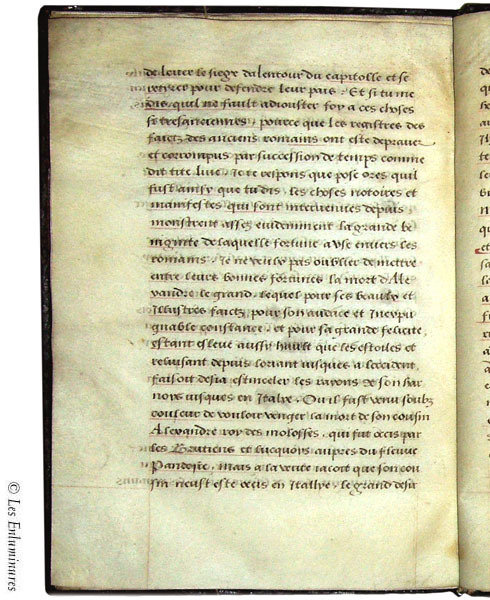 de lever le siege dalentour du capitolle et se
retirer pour defendre leur pais . Et si tu me
dis, quil ne fault adiouster foy a ces choses
si tresanciennes, pource que les registres des
faictz des anciens romains ont este depravez
et corrompus par succession de temps comme
dit tite live . Je te respons que pose ores quil
fust ainsy que tu dis, les choses notoires et
manifestes qui sont intervenues depuis
monstrent assez evidemment la grande be
nignite de laquelle fortune a use envers les
romains . Je ne veulx pas oublier de mettre
entre leurs bonnes fortunes la mort dAle
xandre le grand, lequel pour ses beaulx et
Illustres faictz, pour son audace et Inexpu
gnable constance, et pour sa grande felicite,
estant esleve aussy hault que les estoiles et
reluisant depuis lorient iusques a loccident,
faisoit desia estinceler les rayons de son har
nois iusques en Italye . Ou il fust venu soubz
couleur de vouloir venger la mort de son cousin
Alexandre roy des molosses, qui fut occis par
les Brutiens et lucquois aupres du fleuve
Pandosie, mais a la verite iacoit que son cou
sin neust este occis en Itallye, le grand desir
© Les Enluminures